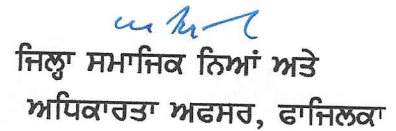 ਜਿਲ੍ਹਾ ਸਮਾਜਿਕ ਨਿਆਂ ਅਤੇ
ਅਧਿਕਾਰਤਾ ਅਫਸਰ, ਫਾਜਿਲਕਾ